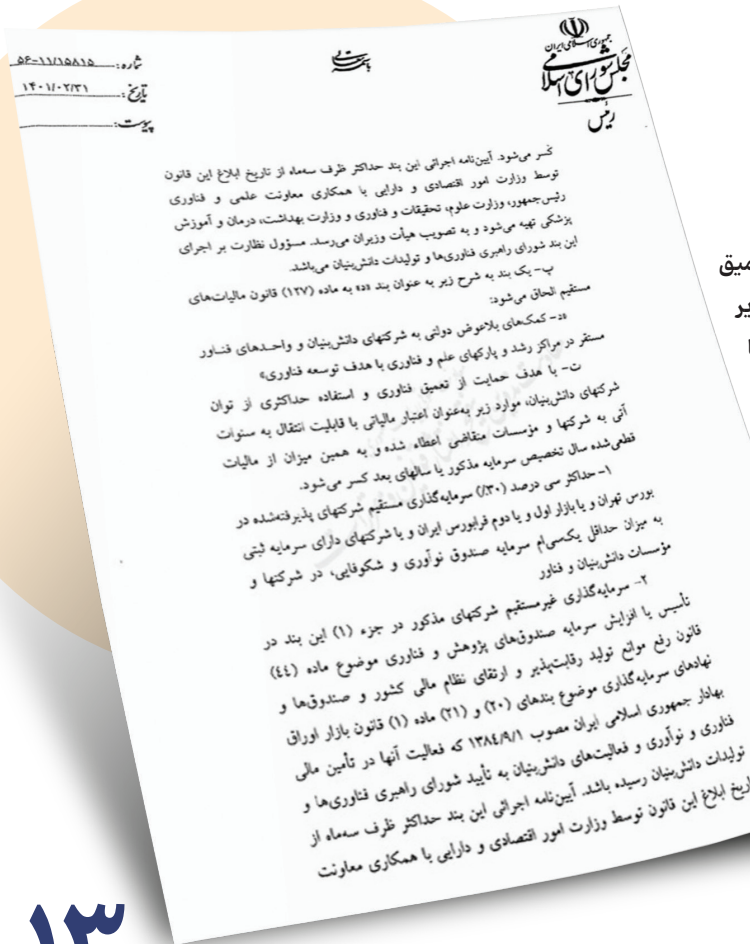 جمهوری اسلامی ایران
مجلس شورای اسلامی
رئیس
باسمه تعالی
شماره: ۵۶-۱۱/۱۵۸۱۵
تاریخ: ۱۴۰۱/۰۲/۳۱
پیوست:
کسر می‌شود. آیین‌نامه اجرائی این بند حداکثر ظرف سه‌ماه از تاریخ ابلاغ این قانون
توسط وزارت امور اقتصادی و دارایی با همکاری معاونت علمی و فناوری
رئیس‌جمهور، وزارت علوم، تحقیقات و فناوری و وزارت بهداشت، درمان و آموزش
پزشکی تهیه می‌شود و به تصویب هیأت وزیران می‌رسد. مسؤول نظارت بر اجرای
این بند شورای راهبری فناوری‌ها و تولیدات دانش‌بنیان می‌باشد.
پ- یک بند به شرح زیر به عنوان بند «د» به ماده (۱۲۷) قانون مالیات‌های
مستقیم الحاق می‌شود:
«د- کمک‌های بلاعوض دولتی به شرکتهای دانش‌بنیان و واحدهای فناور
مستقر در مراکز رشد و پارکهای علم و فناوری با هدف توسعه فناوری»
ت- با هدف حمایت از تعمیق فناوری و استفاده حداکثری از توان
شرکتهای دانش‌بنیان، موارد زیر به‌عنوان اعتبار مالیاتی با قابلیت انتقال به سنوات
آتی به شرکتها و مؤسسات متقاضی اعطاء شده و به همین میزان از مالیات
قطعی‌شده سال تخصیص سرمایه مذکور یا سالهای بعد کسر می‌شود.
۱- حداکثر سی درصد (۳۰٪) سرمایه‌گذاری مستقیم شرکتهای پذیرفته‌شده در
بورس تهران و یا بازار اول و یا دوم فرابورس ایران و یا شرکتهای دارای سرمایه ثبتی
به میزان حداقل یک‌سی‌ام سرمایه صندوق نوآوری و شکوفایی، در شرکتها و
مؤسسات دانش‌بنیان و فناور
۲- سرمایه‌گذاری غیرمستقیم شرکتهای مذکور در جزء (۱) این بند در
تأسیس یا افزایش سرمایه صندوق‌های پژوهش و فناوری موضوع ماده (۴۴)
قانون رفع موانع تولید رقابت‌پذیر و ارتقای نظام مالی کشور و صندوق‌ها و
نهادهای سرمایه‌گذاری موضوع بندهای (۲۰) و (۲۱) ماده (۱) قانون بازار اوراق
بهادار جمهوری اسلامی ایران مصوب ۱۳۸۴/۹/۱ که فعالیت آنها در تأمین مالی
فناوری و نوآوری و فعالیت‌های دانش‌بنیان به تأیید شورای راهبری فناوری‌ها و
تولیدات دانش‌بنیان رسیده باشد. آیین‌نامه اجرائی این بند حداکثر ظرف سه‌ماه از
تاریخ ابلاغ این قانون توسط وزارت امور اقتصادی و دارایی با همکاری معاونت
۱۳